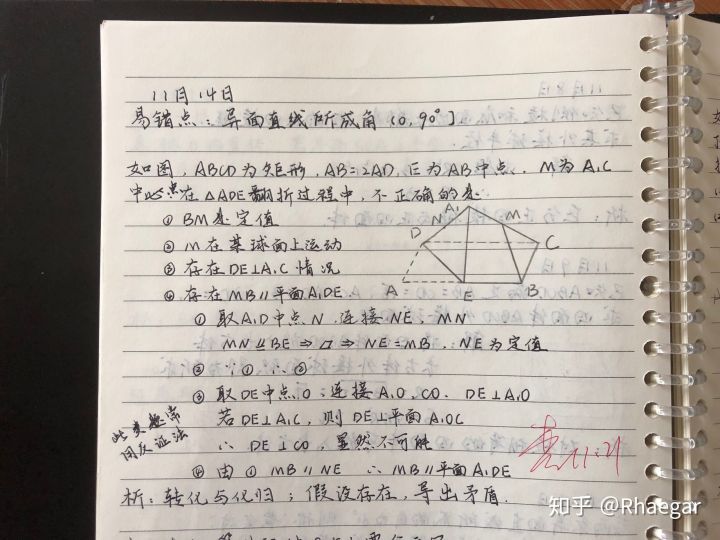 11月14日
易错点：异面直线所成角 (0, 90°]
如图, ABCD为矩形, AB=2AD, E为AB中点. M为A₁C
中点 在△ADE翻折过程中, 不正确的是
① BM是定值
② M在某球面上运动
③ 存在DE⊥A₁C情况
④ 存在MB∥平面A₁DE
A₁
N
M
D
C
A
E
B
① 取A₁D中点N. 连接NE, MN
MN ⫫ BE ⇒ ▱ ⇒ NE=MB. NE为定值
② ∵① ∴②
③ 取DE中点O; 连接A₁O, CO. DE⊥A₁O
若DE⊥A₁C, 则DE⊥平面A₁OC
∴ DE⊥CO, 显然不可能
此类题常
用反证法
④ 由① MB∥NE ∴ MB∥平面A₁DE
析: 转化与化归; 假设存在, 导出矛盾.
11.21
知乎 @Rhaegar